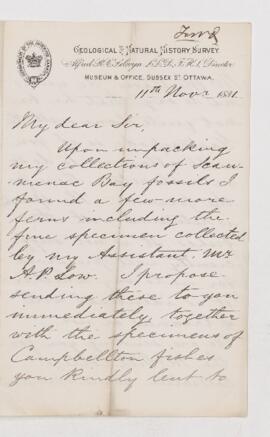 GEOLOGICAL AND NATURAL HISTORY SURVEY.
Alfred R. C. Selwyn L.L.D. F.R.S. Director
MUSEUM & OFFICE, SUSSEX ST. OTTAWA.
11th Novr 1881.
My dear Sir,
Upon unpacking
my collections of Scau-
menac Bay fossils I
found a few more
ferns including the
fine specimen collected
by my Assistant. Mr
A.P. Low. I propose
sending these to you
immediately, together
with the specimens of
Campbellton fishes
you kindly lent to